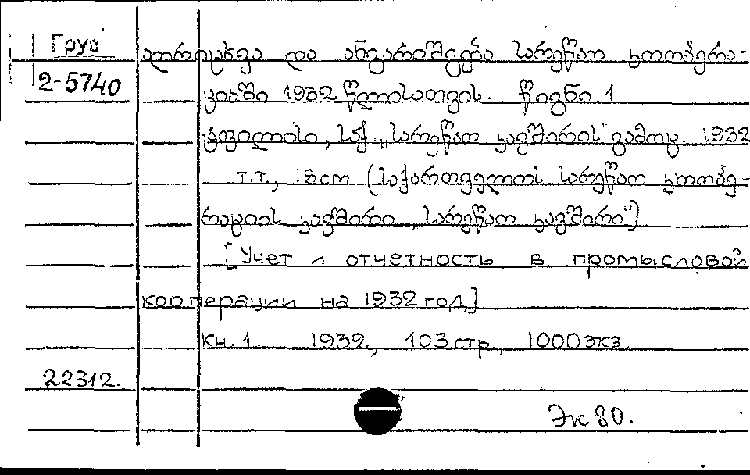 Груз
2-5740
აღრიცხვა და ანგარიშგება სარეწაო კოოპერა-
ციაში 1932 წლისათვის. წიგნი 1
ტფილისი, საქ. „სარეწაო კავშირის" გამოც. 1932
ტ.ტ., (საქართველოს სარეწაო კოოპე-
რაციის კავშირი „სარეწაო კავშირი")
[Учет и отчетность в промысловой
кооперации на 1932 год]
Кн. 1 1932., 103 стр., 1000 экз.
22312.
Эк 80.